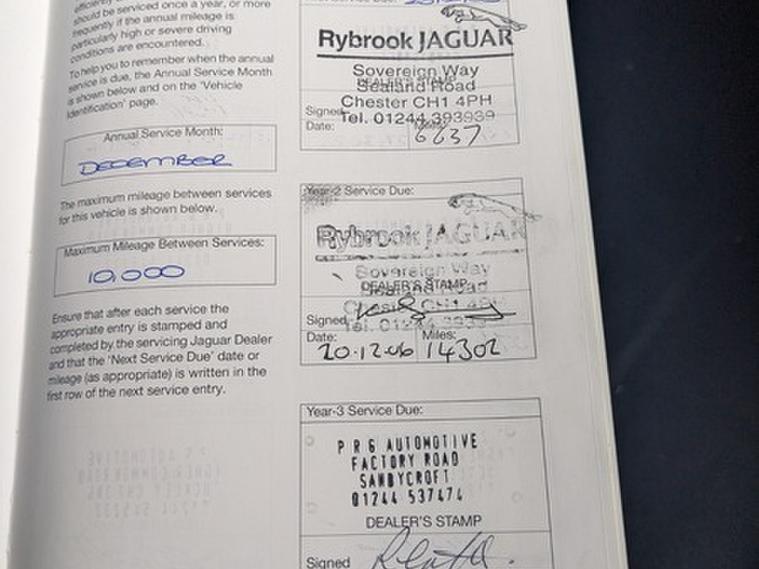 should be serviced once a year, or more
frequently if the annual mileage is
particularly high or severe driving
conditions are encountered.
To help you to remember when the annual
service is due, the Annual Service Month
is shown below and on the 'Vehicle
Identification' page.
Annual Service Month:
DECEMBER
The maximum mileage between services
for this vehicle is shown below.
Maximum Mileage Between Services:
10,000
Ensure that after each service the
appropriate entry is stamped and
completed by the servicing Jaguar Dealer
and that the 'Next Service Due' date or
mileage (as appropriate) is written in the
first row of the next service entry.
Rybrook JAGUAR
Sovereign Way
DEALER'S STAMP
Sealand Road
Chester CH1 4PH
Signed
Tel. 01244 393939
Date: Miles:
6637
Year-2 Service Due:
Rybrook JAGUAR
Sovereign Way
DEALER'S STAMP
Sealand Road
Chester CH1 4PH
Signed
Tel. 01244 3939
Date: Miles:
20.12.06 14302
Year-3 Service Due:
P R G AUTOMOTIVE
FACTORY ROAD
SANDYCROFT
01244 537474
DEALER'S STAMP
Signed